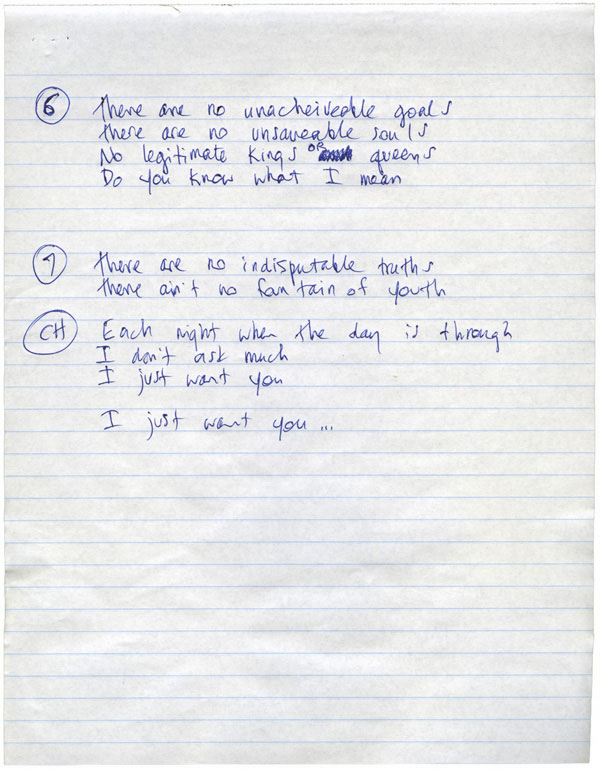 6 there are no unacheiveable goals
there are no unsaveable souls
No legitimate kings OR queens
Do you know what I mean
7 there are no indisputable truths
there ain't no fountain of youth
CH Each night when the day is through
I don't ask much
I just want you
I just want you ...